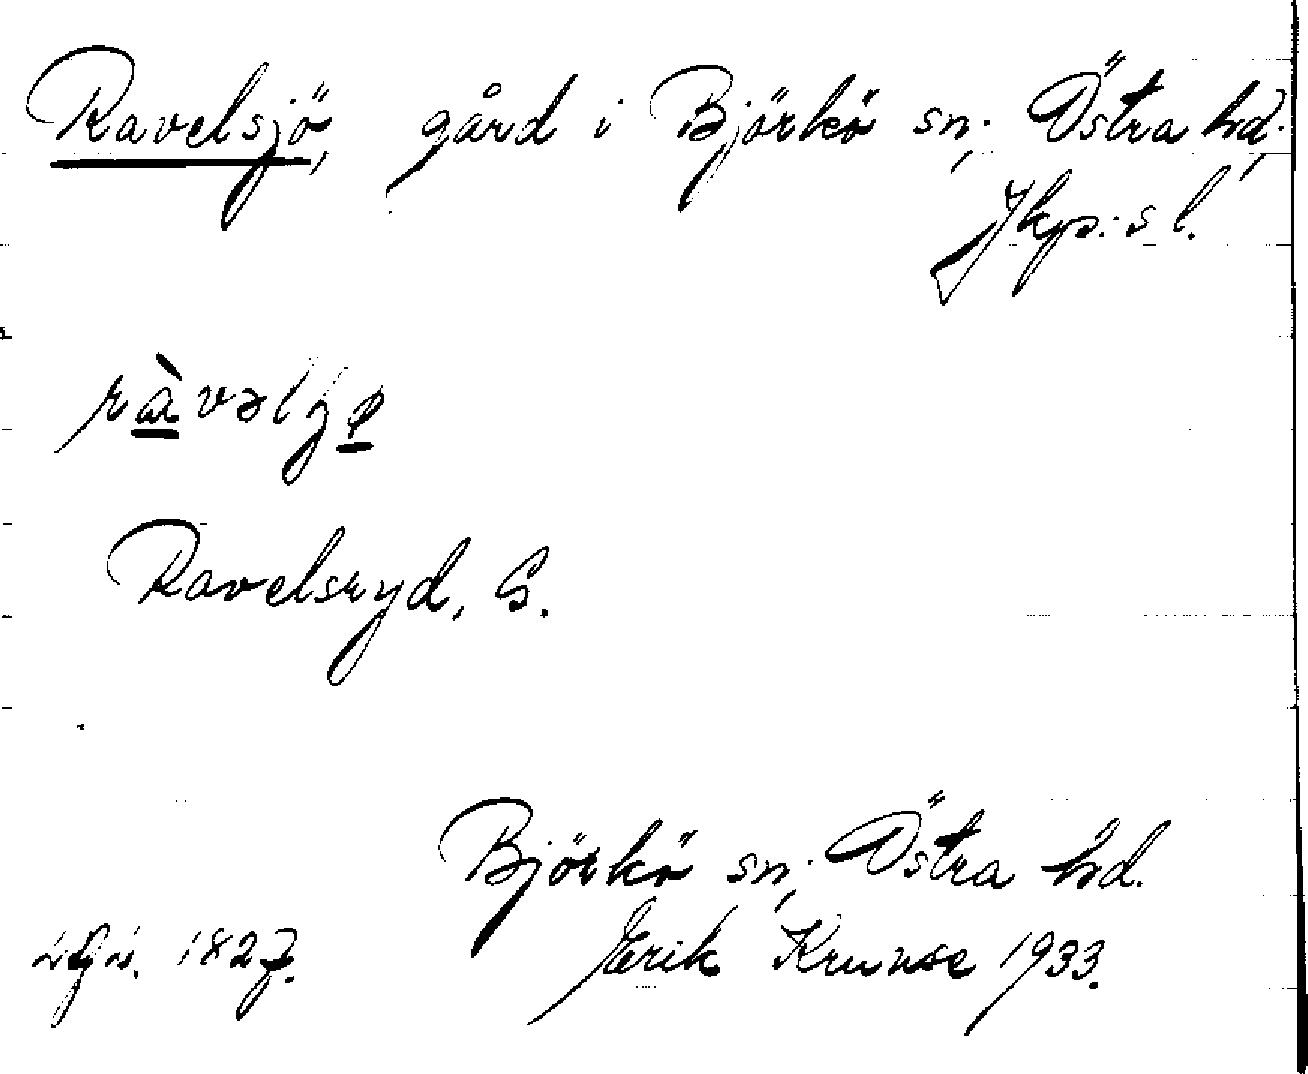 Ravelsjö, gård i Björkö sn, Östra hd,
Jkp:s l.
ràvəlʒø
Ravelsryd, G.
Björkö sn, Östra hd.
1827. Erik Krunse 1933.